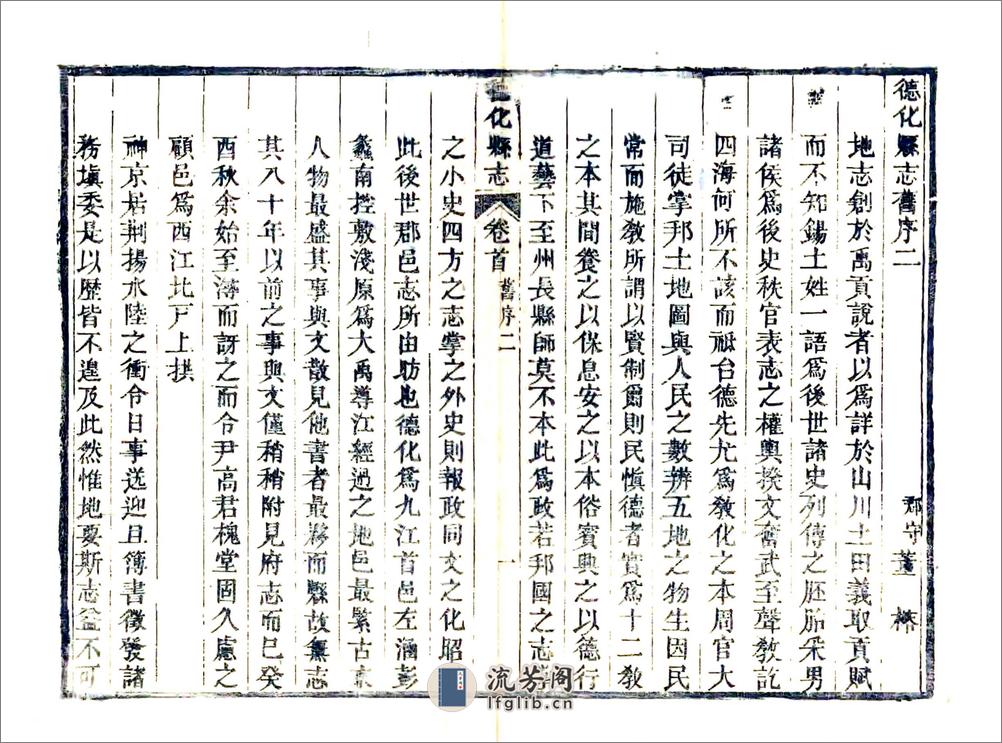 德化縣志舊序二
郡守董榕
地志創於禹貢說者以爲詳於山川土田義取貢賦
而不知錫土姓一語爲後世諸史列傳之胚胎采男
諸侯爲後史秩官表志之權輿揆文奮武至聲敎訖
四海何所不該而祗台德先尤爲敎化之本周官大
司徒掌邦土地圖與人民之數辨五地之物生因民
常而施敎所謂以賢制爵則民愼德者實爲十二敎
之本其間養之以保息安之以本俗賓興之以德行
道藝下至州長縣師莫不本此爲政若邦國之志
化縣志
卷首
舊序二
一
之小史四方之志掌之外史則報政同文之化昭
此後世郡邑志所由昉也德化爲九江首邑左涵彭
蠡南控敷淺原爲大禹導江經過之地邑最繁古
人物最盛其事與文散見他書者最夥而縣故無志
其八十年以前之事與文僅稍稍附見府志而已癸
酉秋余始至潯而訝之而令尹高君槐堂固久慮之
顧邑爲西江北戸上拱
神京居荆揚水陸之衝令日事送迎且簿書徵發諸
務塡委是以歷皆不遑及此然惟地要斯志益不可
流芳阁
lfglib.cn